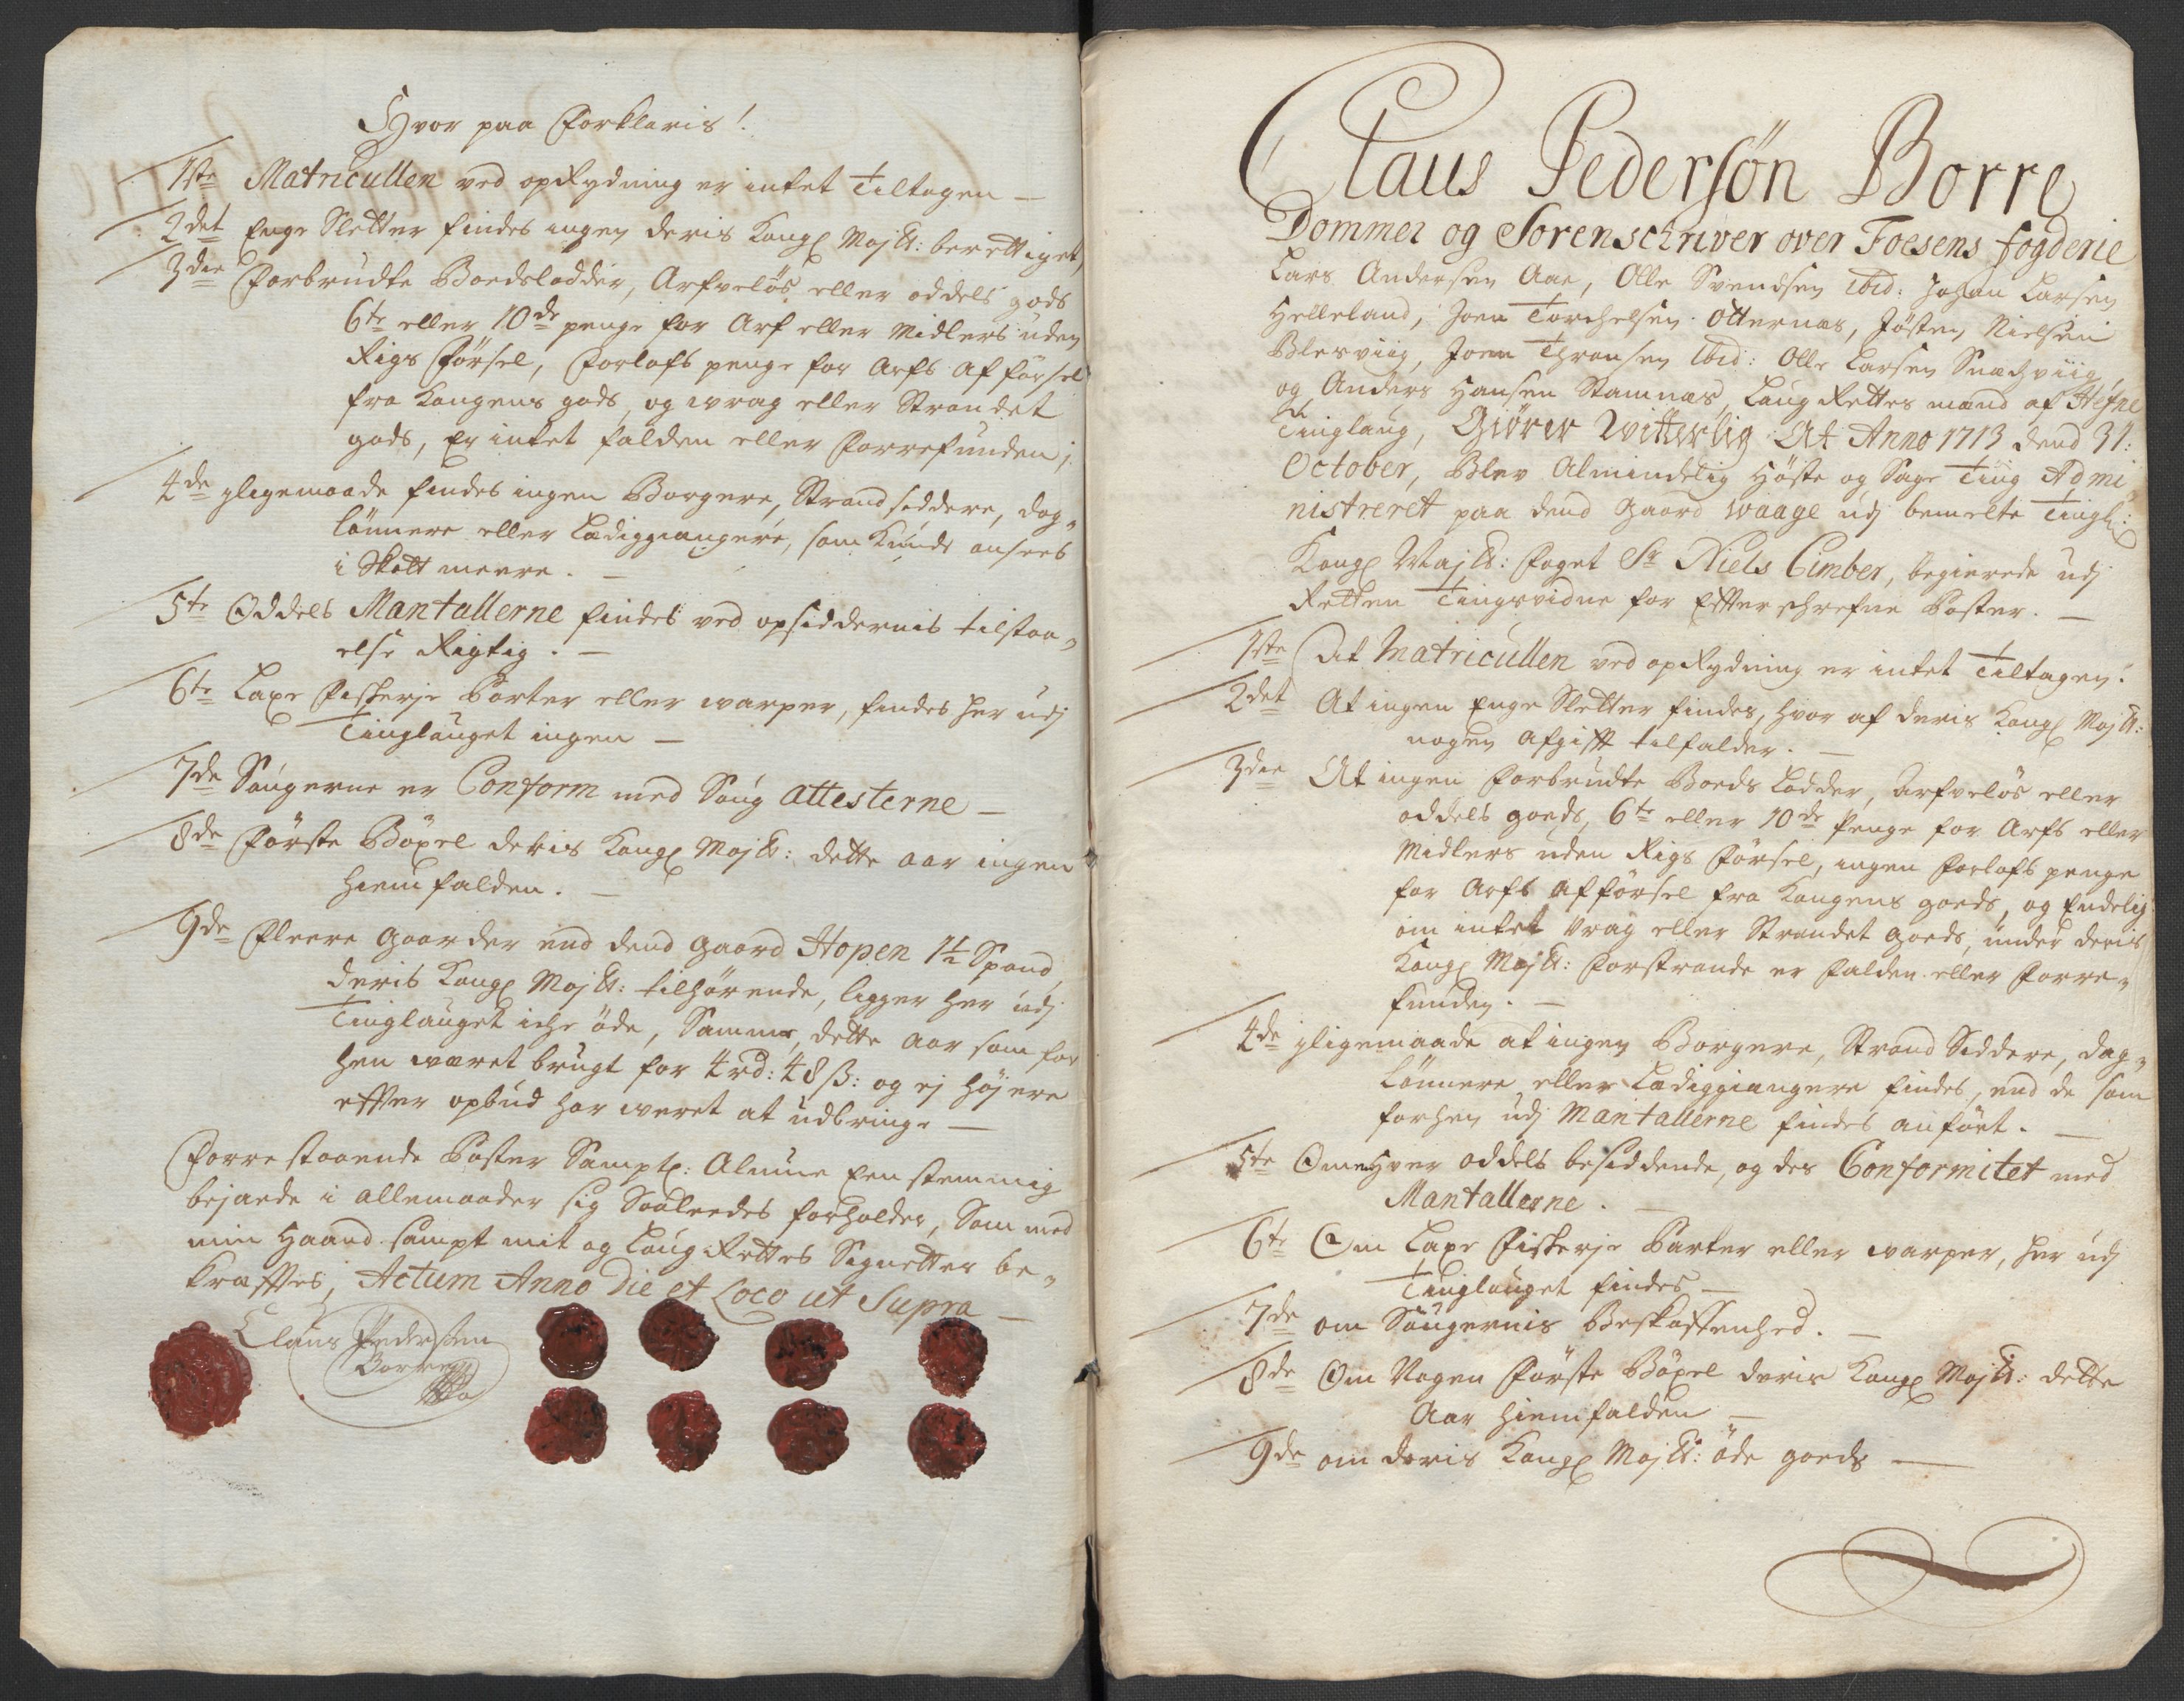 Hvor paa Forklaris!
1ste Matricullen ved opRydning er intet Tiltagen —
2det Enge Sletter findes ingen deris Kongl Maÿtt: berettiget,
3die Forbrudte Boedslodder, Arfveløs eller oddels gods
6te eller 10de penge for Arf eller Midlers uden
Rigs Førsel, Forlofs penge for Arfs afførsel
fra Kongens gods, og wrag eller Strandet
gods, Er intet falden eller Forrefunden;
4de jligemaade findes ingen Borgere, Strandsiddere, dag-
lønnere eller Lædiggiængere, som kunde ansees
i Skatt meere. —
5te Oddels Mantallerne findes ved opsiddernis tilstaa-
else Rigtig. —
6te Laxe Fiskerje Parter eller warper, findes her udj
Tinglauget ingen —
7de Saugerne er Conform med Saug attesterne —
8de Første Böxel deris Kongl Maÿtt: dette aar ingen
hiemfalden. —
9de Fleere gaarder end dend gaard Hopen 1½ Spand
deris Kongl Maÿtt: tilhørende, ligger her udj
Tinglauget iche øde, Samme dette aar som for
hen været brugt for 4 rd: 48 ß: og ej høyere
effter opbud har weret at udbringe —
Forrestaaende Poster Samptl: Almue Eenstemmig
bejaede i allemaader sig Saaleedes forholder, Som med
min Haand sampt mit og LaugRettes Signetter be-
kræfftes, Actum Anno Die et Loco ut Supra —
Claus Pedersøen
Borre
Claus Pedersøn Borre
Dommer og Sorenschriver over Foesens fogderie
Lars Andersen Aae, Olle Svendsen ibid: Johan Larsen
Helleland, Joen Torchelsen Otternæs, Jøsten Nielsen
Blesviig, Joen Thronsen ibid: Olle Larsen Snachviig,
og Anders Hansen Stamnæs, LaugRettes mænd af Hefne
Tinglaug, Giører Witterlig At Anno 1713 dend 31:
October, Blev Almindelig Høste og Sage Ting Admi
nistreret paa dend gaard Waage udj bemelte Tingl:
Kongl Maÿtt: Foget Sr Niels Cimber, begierede udj
Retten Tingsvidne for Effterschrefne Poster. —
1ste At Matricullen ved opRydning er intet Tiltagen.
2det At ingen Enge Sletter findes, hvor af deris Kongl Maÿtt:
nogen afgifft tilfalder. —
3die At ingen Forbrudte Boeds Lodder, Arfveløs eller
oddels goeds, 6te eller 10de Penge for Arfs eller
Midlers uden Rigs Førsel, ingen Forlofs penge
for Arfs afførsel fra Kongens goeds, og Endelig
om intet Vrag eller Strandet goeds, under deris
Kongl Maÿtt: Forstrande er falden eller Forre-
funden. —
4de jligemaade at ingen Borgere, Strand Siddere, dag-
lønnere eller Lædiggiængere findes, end de som
forhen udj Mantallerne findes anført. —
5te Om Hver oddels besiddende, og des Conformitet med
Mantallerne. —
6te Om Laxe Fiskerje Parter eller warper, her udj
Tinglauget findes —
7de om Saugernis Beskaffenhed. —
8de Om Nogen Første Böxel deris Kongl Maÿtt: dette
Aar hiemfalden —
9de om deris Kongl Maÿtt: øde goeds —